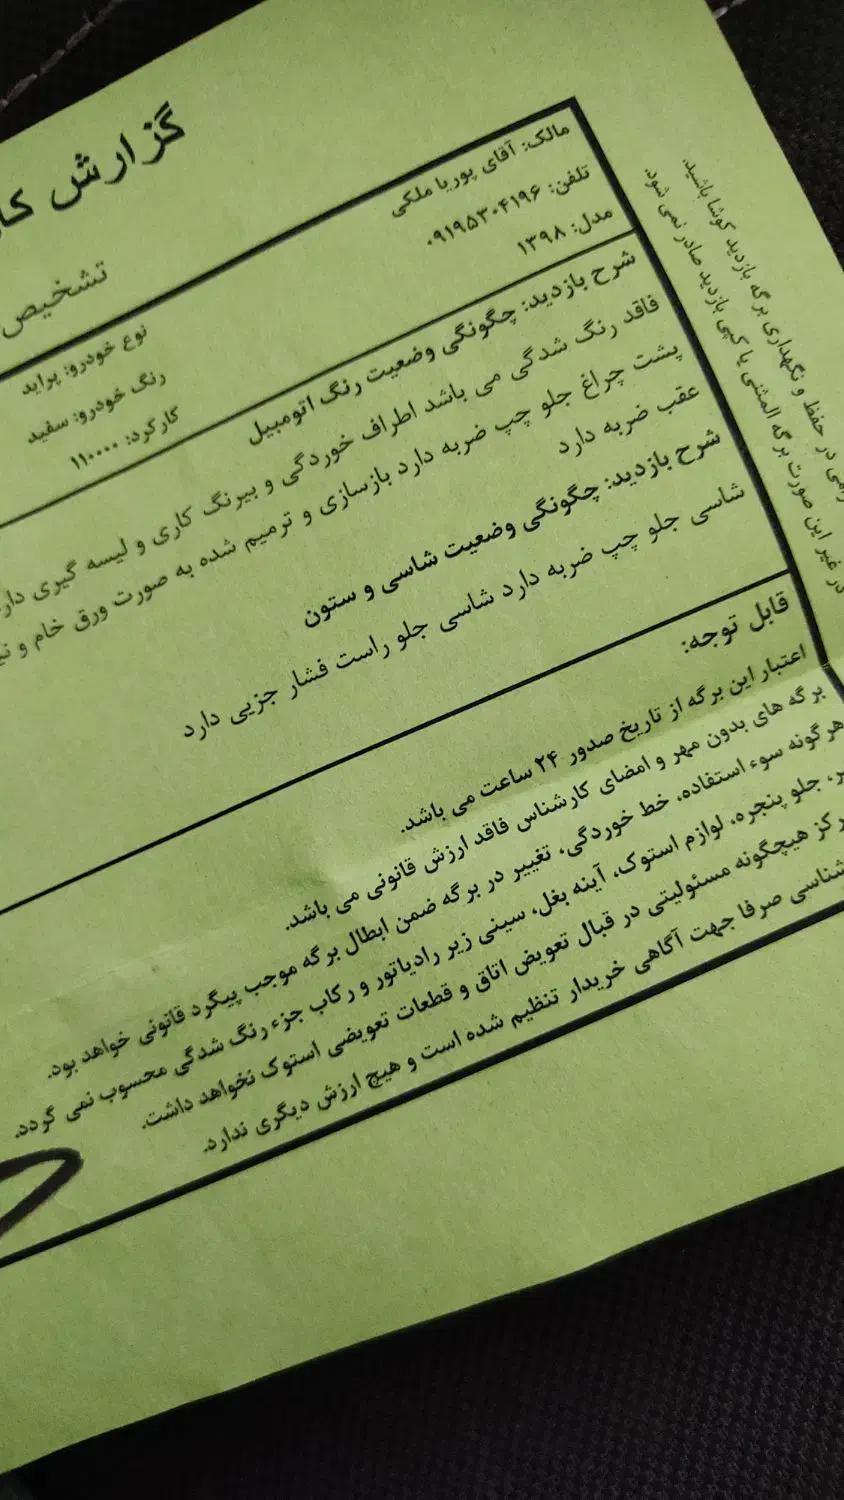 گزارش
تشخیص
مالک: آقای پوریا ملکی
تلفن: ۰۹۱۹۵۳۰۴۱۹۶
مدل: ۱۳۹۸
نوع خودرو: پراید
رنگ خودرو: سفید
کارکرد: ۱۱۰۰۰۰
شرح بازدید: چگونگی وضعیت رنگ اتومبیل
فاقد رنگ شدگی می باشد اطراف خوردگی و بیرنگ کاری و لیسه گیری
پشت چراغ جلو چپ ضربه دارد بازسازی و ترمیم شده به صورت ورق خام و
عقب ضربه دارد
شرح بازدید: چگونگی وضعیت شاسی و ستون
شاسی جلو چپ ضربه دارد شاسی جلو راست فشار جزیی دارد
قابل توجه:
اعتبار این برگه از تاریخ صدور ۲۴ ساعت می باشد.
برگه های بدون مهر و امضای کارشناس فاقد ارزش قانونی می باشد.
هرگونه سوء استفاده، خط خوردگی، تغییر در برگه ضمن ابطال برگه موجب پیگرد قانونی خواهد بود.
جلو پنجره، لوازم استوک، آینه بغل، سینی زیر رادیاتور و رکاب جزء رنگ شدگی محسوب نمی گردد.
هیچگونه مسئولیتی در قبال تعویض اتاق و قطعات تعویضی استوک نخواهد داشت.
صرفا جهت آگاهی خریدار تنظیم شده است و هیچ ارزش دیگری ندارد.
در حفظ و نگهداری برگه بازدید کوشا باشید.
در غیر این صورت برگه المثنی یا کپی بازدید صادر نمی شود.